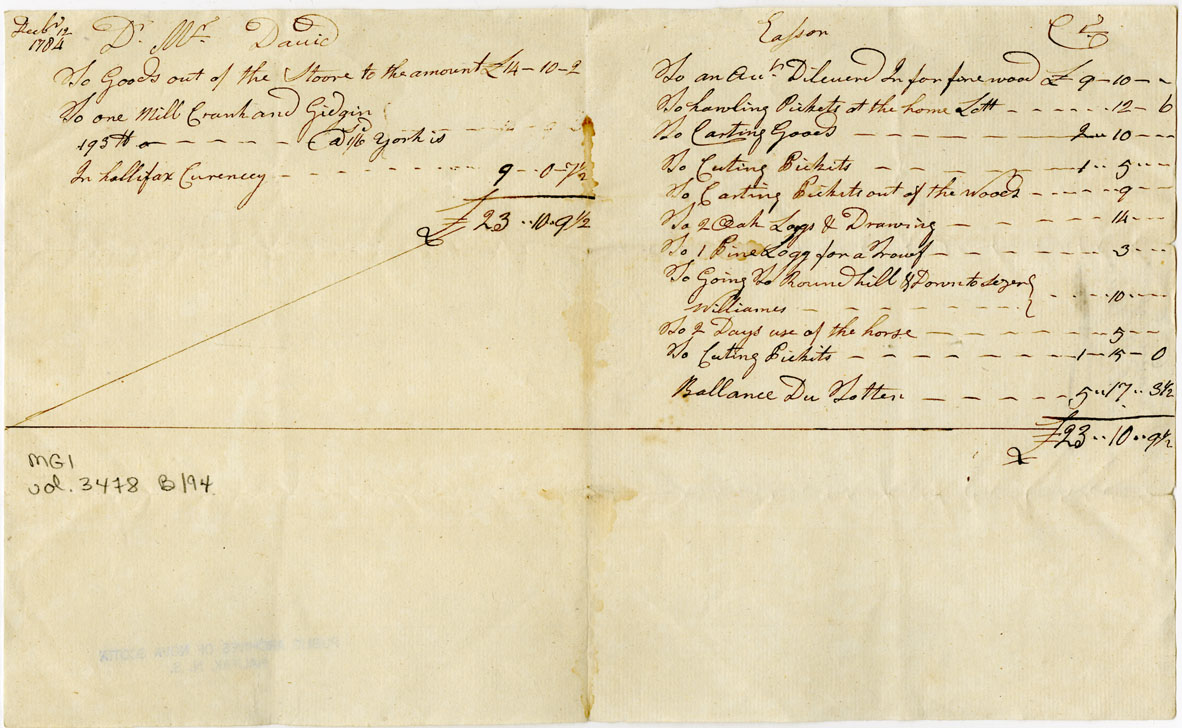 Decbr 12
1784
Dr. Mr. David
To Goods out of the Stoore to the amount £14-10-2
To one Mill Crank and Gidgin
195 lb @ 1/6 York is
In hallifax Curencey 9-0-7½
£23..10..9½
Easson Cr
To an Acct Dileuerd In for fire wood £ 9-10--
To hawling Pickets at the home Lott 12-6
To Carting Goods 2..10---
To Cuting Pickits 1..5---
To Carting Pickits out of the woods 9---
To 2 Oak Loggs & Drawing 14---
To 1 Pine Logg for a Trowf 3---
To Going To Round hill & Down to
Williames 10---
To 2 Days use of the horse 5--
To Cuting Pickits 1-15-0
Ballance Du Totten 5..17..3½
£23..10..9½
MG1
vol. 3478 B/94
PUBLIC ARCHIVES OF NOVA SCOTIA
HALIFAX, N. S.